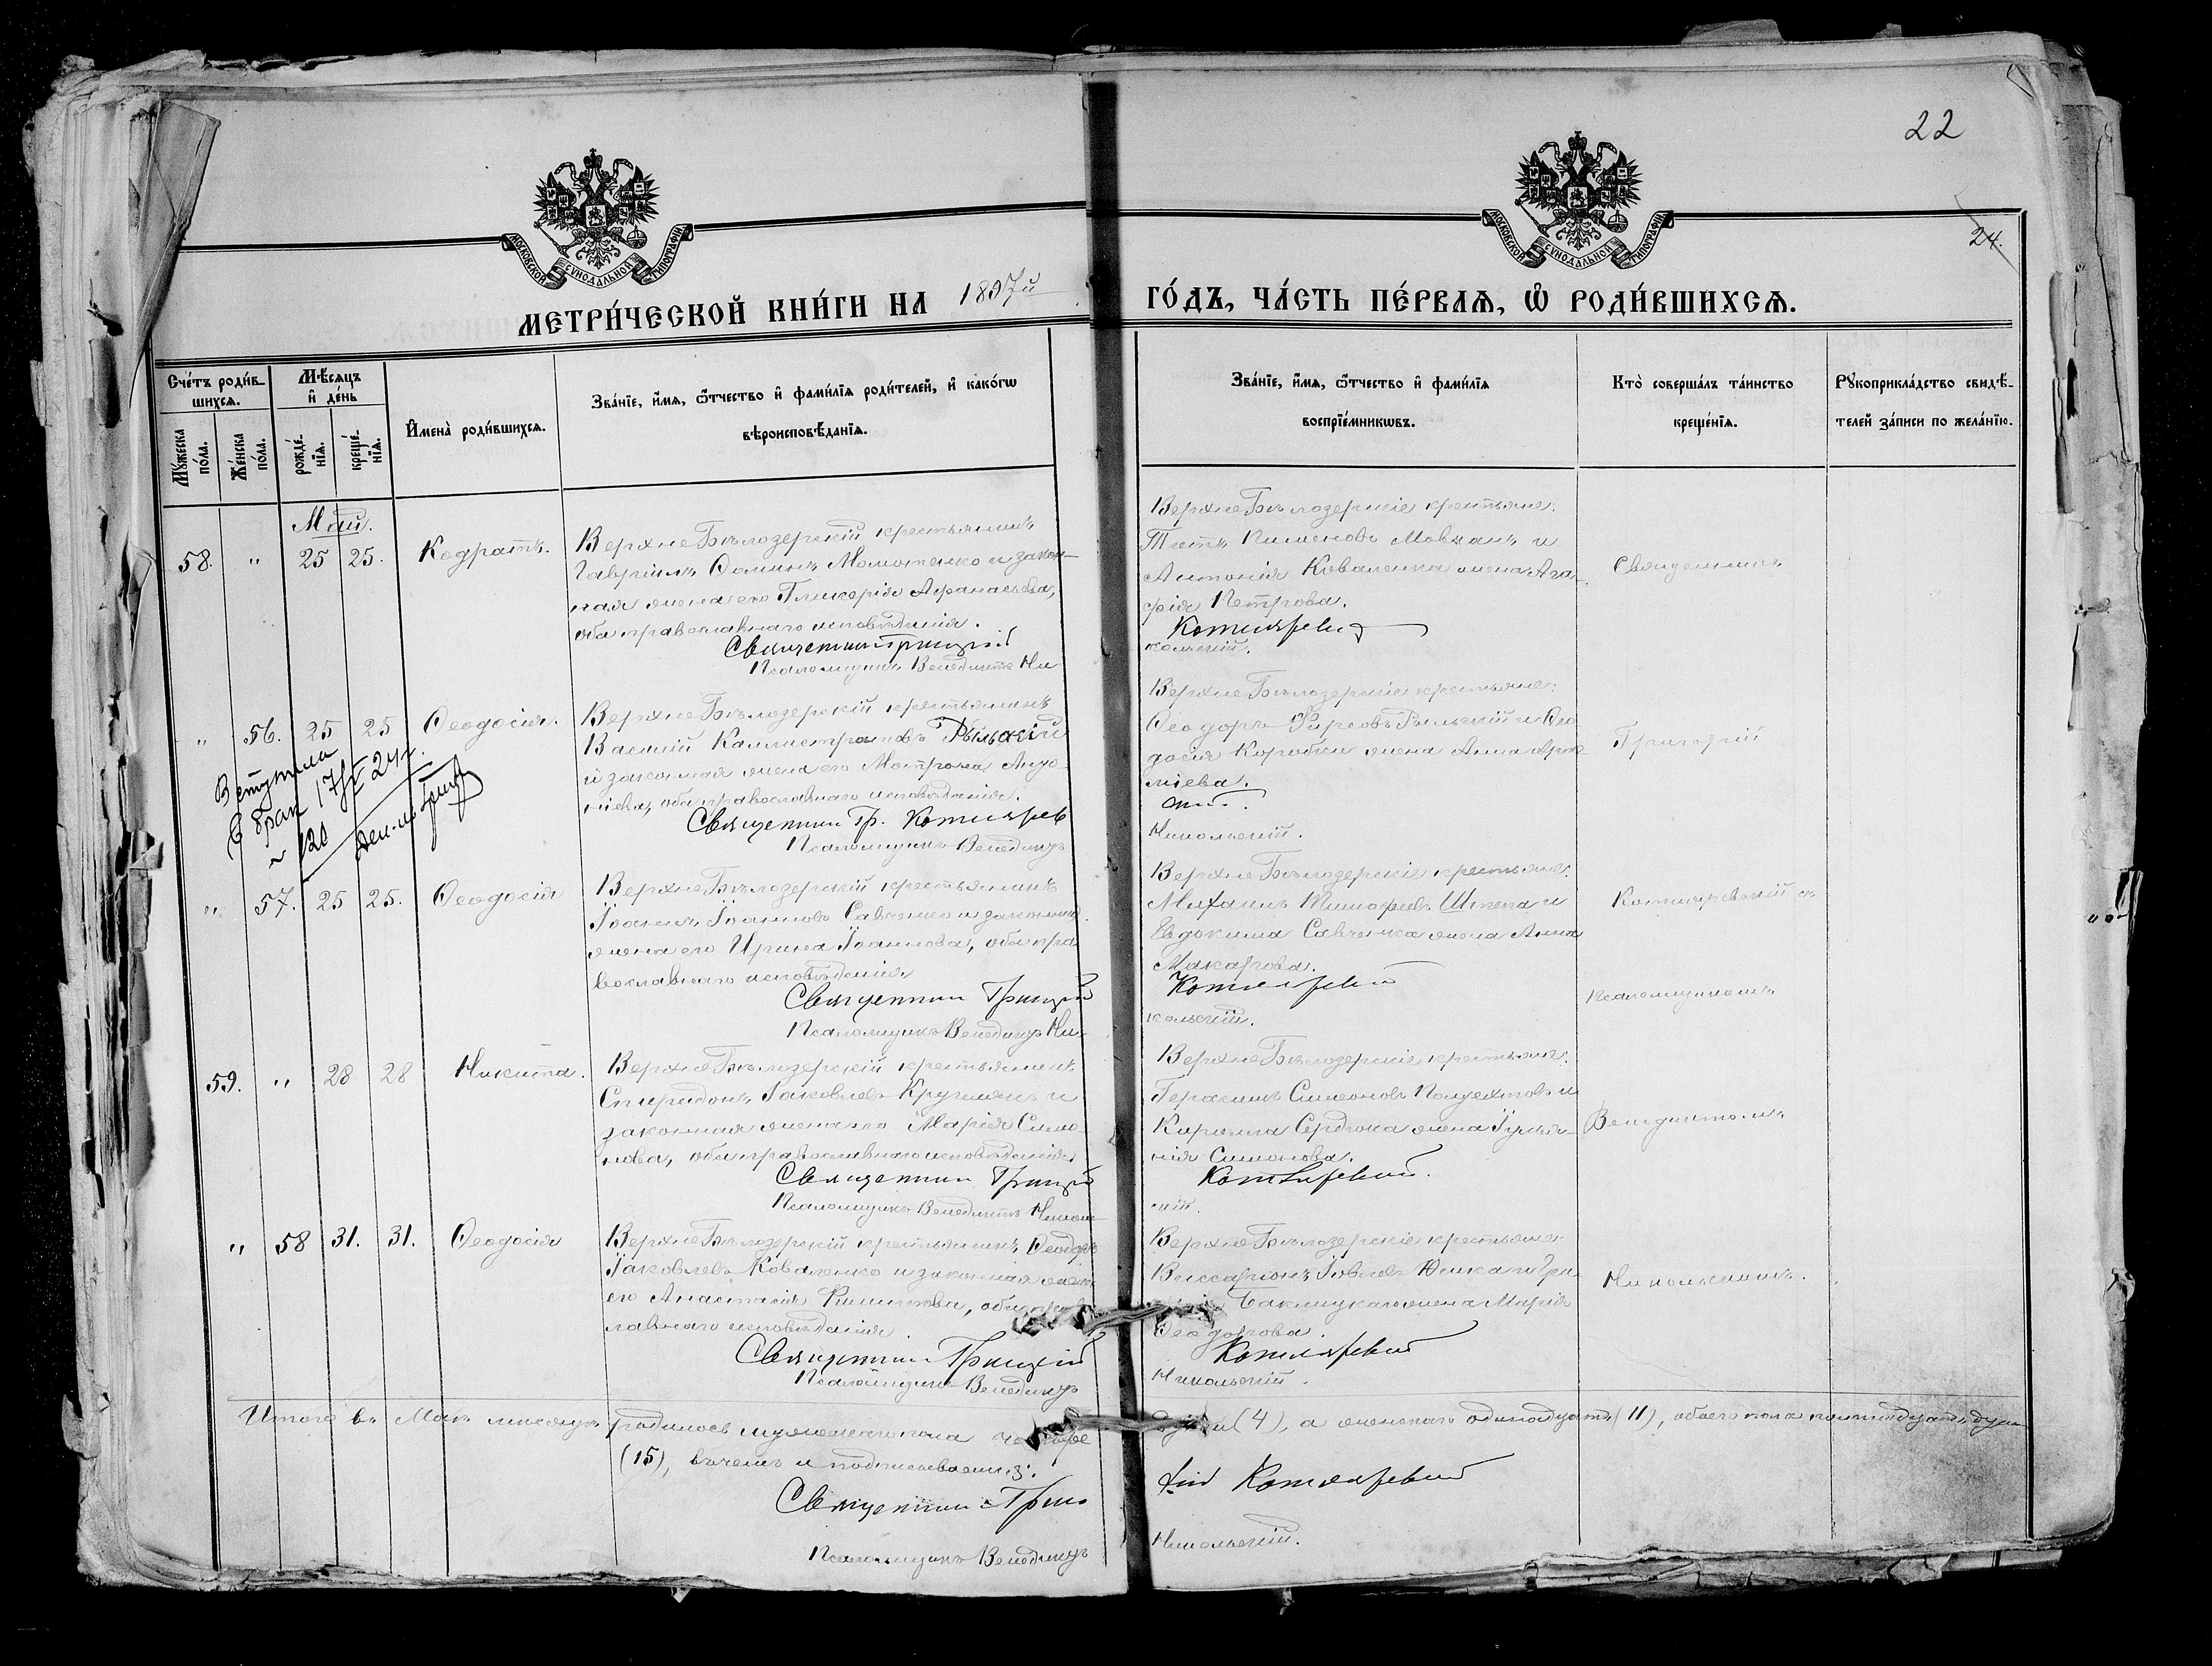 22
24.
МОСКОВСКОЙ СУНОДАЛЬНОЙ ТИПОГРАФІИ
МОСКОВСКОЙ СУНОДАЛЬНОЙ ТИПОГРАФІИ
МЕТРИ́ЧЕСКОЙ КНИ́ГИ НА 1897й ГО́ДЪ, ЧА́СТЬ ПЕ́РВАѦ, Ѡ҆ РОДИ́ВШИХСѦ.
Сче́тъ роди́в-
шихсѧ.
Мꙋ́жеска по́ла.
Же́нска по́ла.
Мѣ́сѧцъ и҆ де́нь
рожде́нїѧ.
креще́нїѧ.
И҆мена̀ роди́вшихсѧ.
Зва́нїе, и҆́мѧ, ѻ҆́тчество и҆ фами́лїѧ роди́телей, и҆ како́гѡ
вѣроисповѣ́данїѧ.
Зва́нїе, и҆́мѧ, ѻ҆́тчество и҆ фами́лїѧ
воспрїе́мникѡвъ.
Кто̀ соверша́лъ та́инство
креще́нїѧ.
Рꙋкоприкла́дство свидѣ́-
телей за́писи по жела́нїю.
Май.
58. " 25 25. Кодратъ.
Верхне Бѣлозерскій крестьянинъ
Гавріилъ Ѳоминъ и закон-
ная жена его Гликерія Аѳанасьева,
оба православнаго исповѣданія.
Священникъ Григорій
Псаломщикъ Венедиктъ Ни
Верхне Бѣлозерскіе крестьяне:
Титъ Пименовъ Мовчанъ и
Антонія Коваленка жена Ага-
фія Петрова.
Котляревскій
кольскій.
Священникъ
" 56. 25 25 Ѳеодосія.
Верхне Бѣлозерскій крестьянинъ
Василій Каллистратовъ Рыльскій
и законная жена его Матрона
оба православнаго исповѣданія.
Священникъ Гр. Котлярев
Псаломщикъ Венедиктъ
Верхне Бѣлозерскіе крестьяне:
Ѳеодоръ Фирсовъ Рыльскій и Ѳео
досія Коробки жена Анна
скій.
Никольскій.
Григорій
Вступила
в брак 17/II 24 г.
№ 120
" 57. 25 25. Ѳеодосія
Верхне Бѣлозерскій крестьянинъ
Іоаннъ Іоанновъ Савченко и законная
жена его Ирина Іоаннова, оба пра
вославнаго исповѣданія
Священникъ Григорій
Псаломщикъ Венедиктъ Ни-
Верхне Бѣлозерскіе крестьяне:
Михаилъ Тимофеевъ Шпета и
Евдокима Савченка жена Анна
Макарова.
Котляревскій
кольскій.
Котляревскій съ
Псаломщикомъ
59. " 28 28 Никита.
Верхне Бѣлозерскій крестьянинъ
Спиридонъ Іаковлевъ и
законная жена его Марія Симо
нова, оба православнаго исповѣданія
Священникъ Григорій
Псаломщикъ Венедиктъ Николь
Верхне Бѣлозерскіе крестьяне:
Герасимъ Симеоновъ и
Кирилла Сердюка жена Іулья-
нія Симонова.
Котляревскій.
скій.
Венедиктомъ
" 58 31. 31. Ѳеодосія
Верхне Бѣлозерскій крестьянинъ Ѳеодоръ
Іаковлевъ Коваленко и законная жена
его Анастасія Филиппова, оба право
славнаго исповѣданія.
Священникъ Григорій
Псаломщикъ Венедиктъ
Верхне Бѣлозерскіе крестьяне:
Виссаріонъ Іовлевъ и Гри
Баклицкаго жена Марія
Ѳеодорова.
Котляревскій
Никольскій.
Никольскимъ.
Итого въ Маѣ мѣсяцѣ родилось мужескаго пола четыре души (4), а женскаго одинадцать (11), обоего пола пятнадцать душъ
(15), въ чемъ и подписываемся:
Священникъ Григо рій Котляревскій
Псаломщикъ Венедиктъ Никольскій.